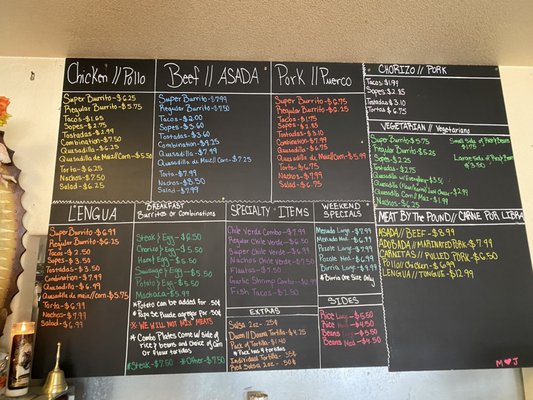 Chicken // Pollo
Super Burrito - $6.25
Regular Burrito - $5.75
Tacos - $1.65
Sopes - $2.75
Tostadas - $2.99
Combination - $7.50
Quesadilla - $6.75
Quesadilla de Maiz/Corn - $5.50
Torta - $6.25
Nachos - $7.50
Salad - $6.25
Beef // ASADA
Super Burrito - $7.99
Regular Burrito - $7.50
Tacos - $2.00
Sopes - $3.60
Tostadas - $3.60
Combination - $7.99
Quesadilla - $7.99
Quesadilla de Maiz/Corn - $7.25
Torta - $7.99
Nachos - $8.50
Salad - $7.99
Pork // Puerco
Super Burrito - $6.75
Regular Burrito - $6.25
Tacos - $1.75
Sopes - $2.85
Tostadas - $3.10
Combination - $7.75
Quesadilla - $6.75
Quesadilla de Maiz/Corn - $5.99
Torta - $6.75
Nachos - $7.99
Salad - $6.75
CHORIZO // PORK
Tacos $1.99
Sopes $2.85
Tostadas $3.10
Tortas $6.75
VEGETARIAN // Vegetariano
Super Burrito - $5.75
Regular Burrito - $5.25
Sopes - $2.25
Tostadas - $2.75
Small side of Rice/Beans
Large Side of Rice/Beans
LENGUA
Super Burrito - $6.99
Regular Burrito - $6.25
Tacos - $2.50
Sopes - $3.50
Tostadas - $3.50
Combination - $7.99
Quesadilla - $6.99
Quesadilla de maiz/corn - $5.75
Torta - $6.99
Nachos - $7.99
Salad - $6.99
BREAKFAST
Burritos or Combinations
Steak & Egg - $6.50
Chorizo & Egg - $5.50
Ham & Egg - $5.50
Sausage & Egg - $5.50
Potato & Egg - $5.50
Machaca - $5.99
*Potato can be added for .50¢
*Papa Se Puede agregar for .50¢
*WE WILL NOT MIX MEATS
*Combo Plates Come w/ side of
rice & beans and choice of Corn
or Flour tortillas
*Steak - $7.50 *Other - $7.50
SPECIALTY ITEMS
Chile Verde Combo - $7.99
Regular Chile Verde - $6.50
Super Chile Verde - $6.99
Nachos Chile Verde - $7.50
Flautas - $7.50
Garlic Shrimp Combo - $7.99
Fish Tacos - $2.50
EXTRAS
Salsa 2oz - .25¢
Pack of Tortilla - $1.40
*Pack has 9 tortillas
Individual Tortilla - .35¢
Red Salsa 2oz - .50¢
WEEKEND
SPECIALS
Menudo Large - $7.99
Menudo Med - $6.99
Pozole Large - $7.99
Pozole Med - $6.99
Birria Large - $7.99
*Birria One Size Only
SIDES
Rice Large - $5.50
Rice Med - $4.50
Beans Large - $5.50
Beans Med - $4.50
MEAT BY THE POUND // CARNE POR LIBRA
ASADA // BEEF - $8.99
ADOBADA // MARINATED PORK - $7.99
CARNITAS // PULLED PORK - $6.50
POLLO // Chicken - $6.99
LENGUA // TONGUE - $12.99
M ♥ J